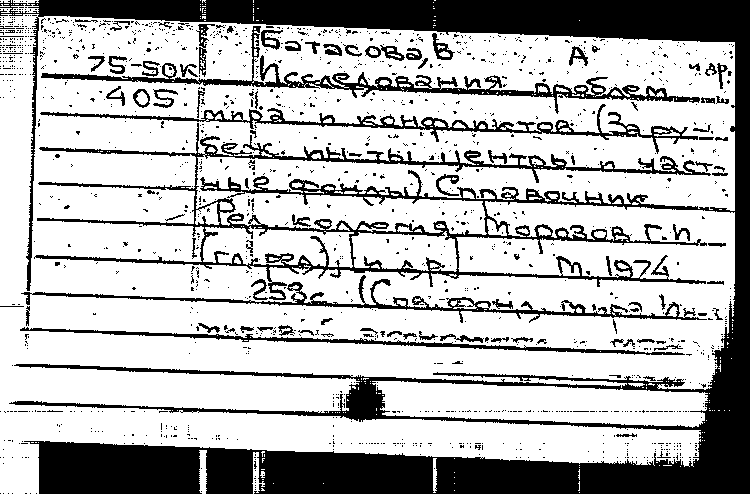 Батасова, В А и др.
75-50к Исследования проблем
405 мира и конфликтов (Зару-
беж. ин-ты, центры и част-
ные фонды). Справочник
Ред. коллегия: Морозов Г.И.
(гл. ред), [и др] М., 1974
253с (Сов. фонд. мира. Ин-т
мировой экономики и